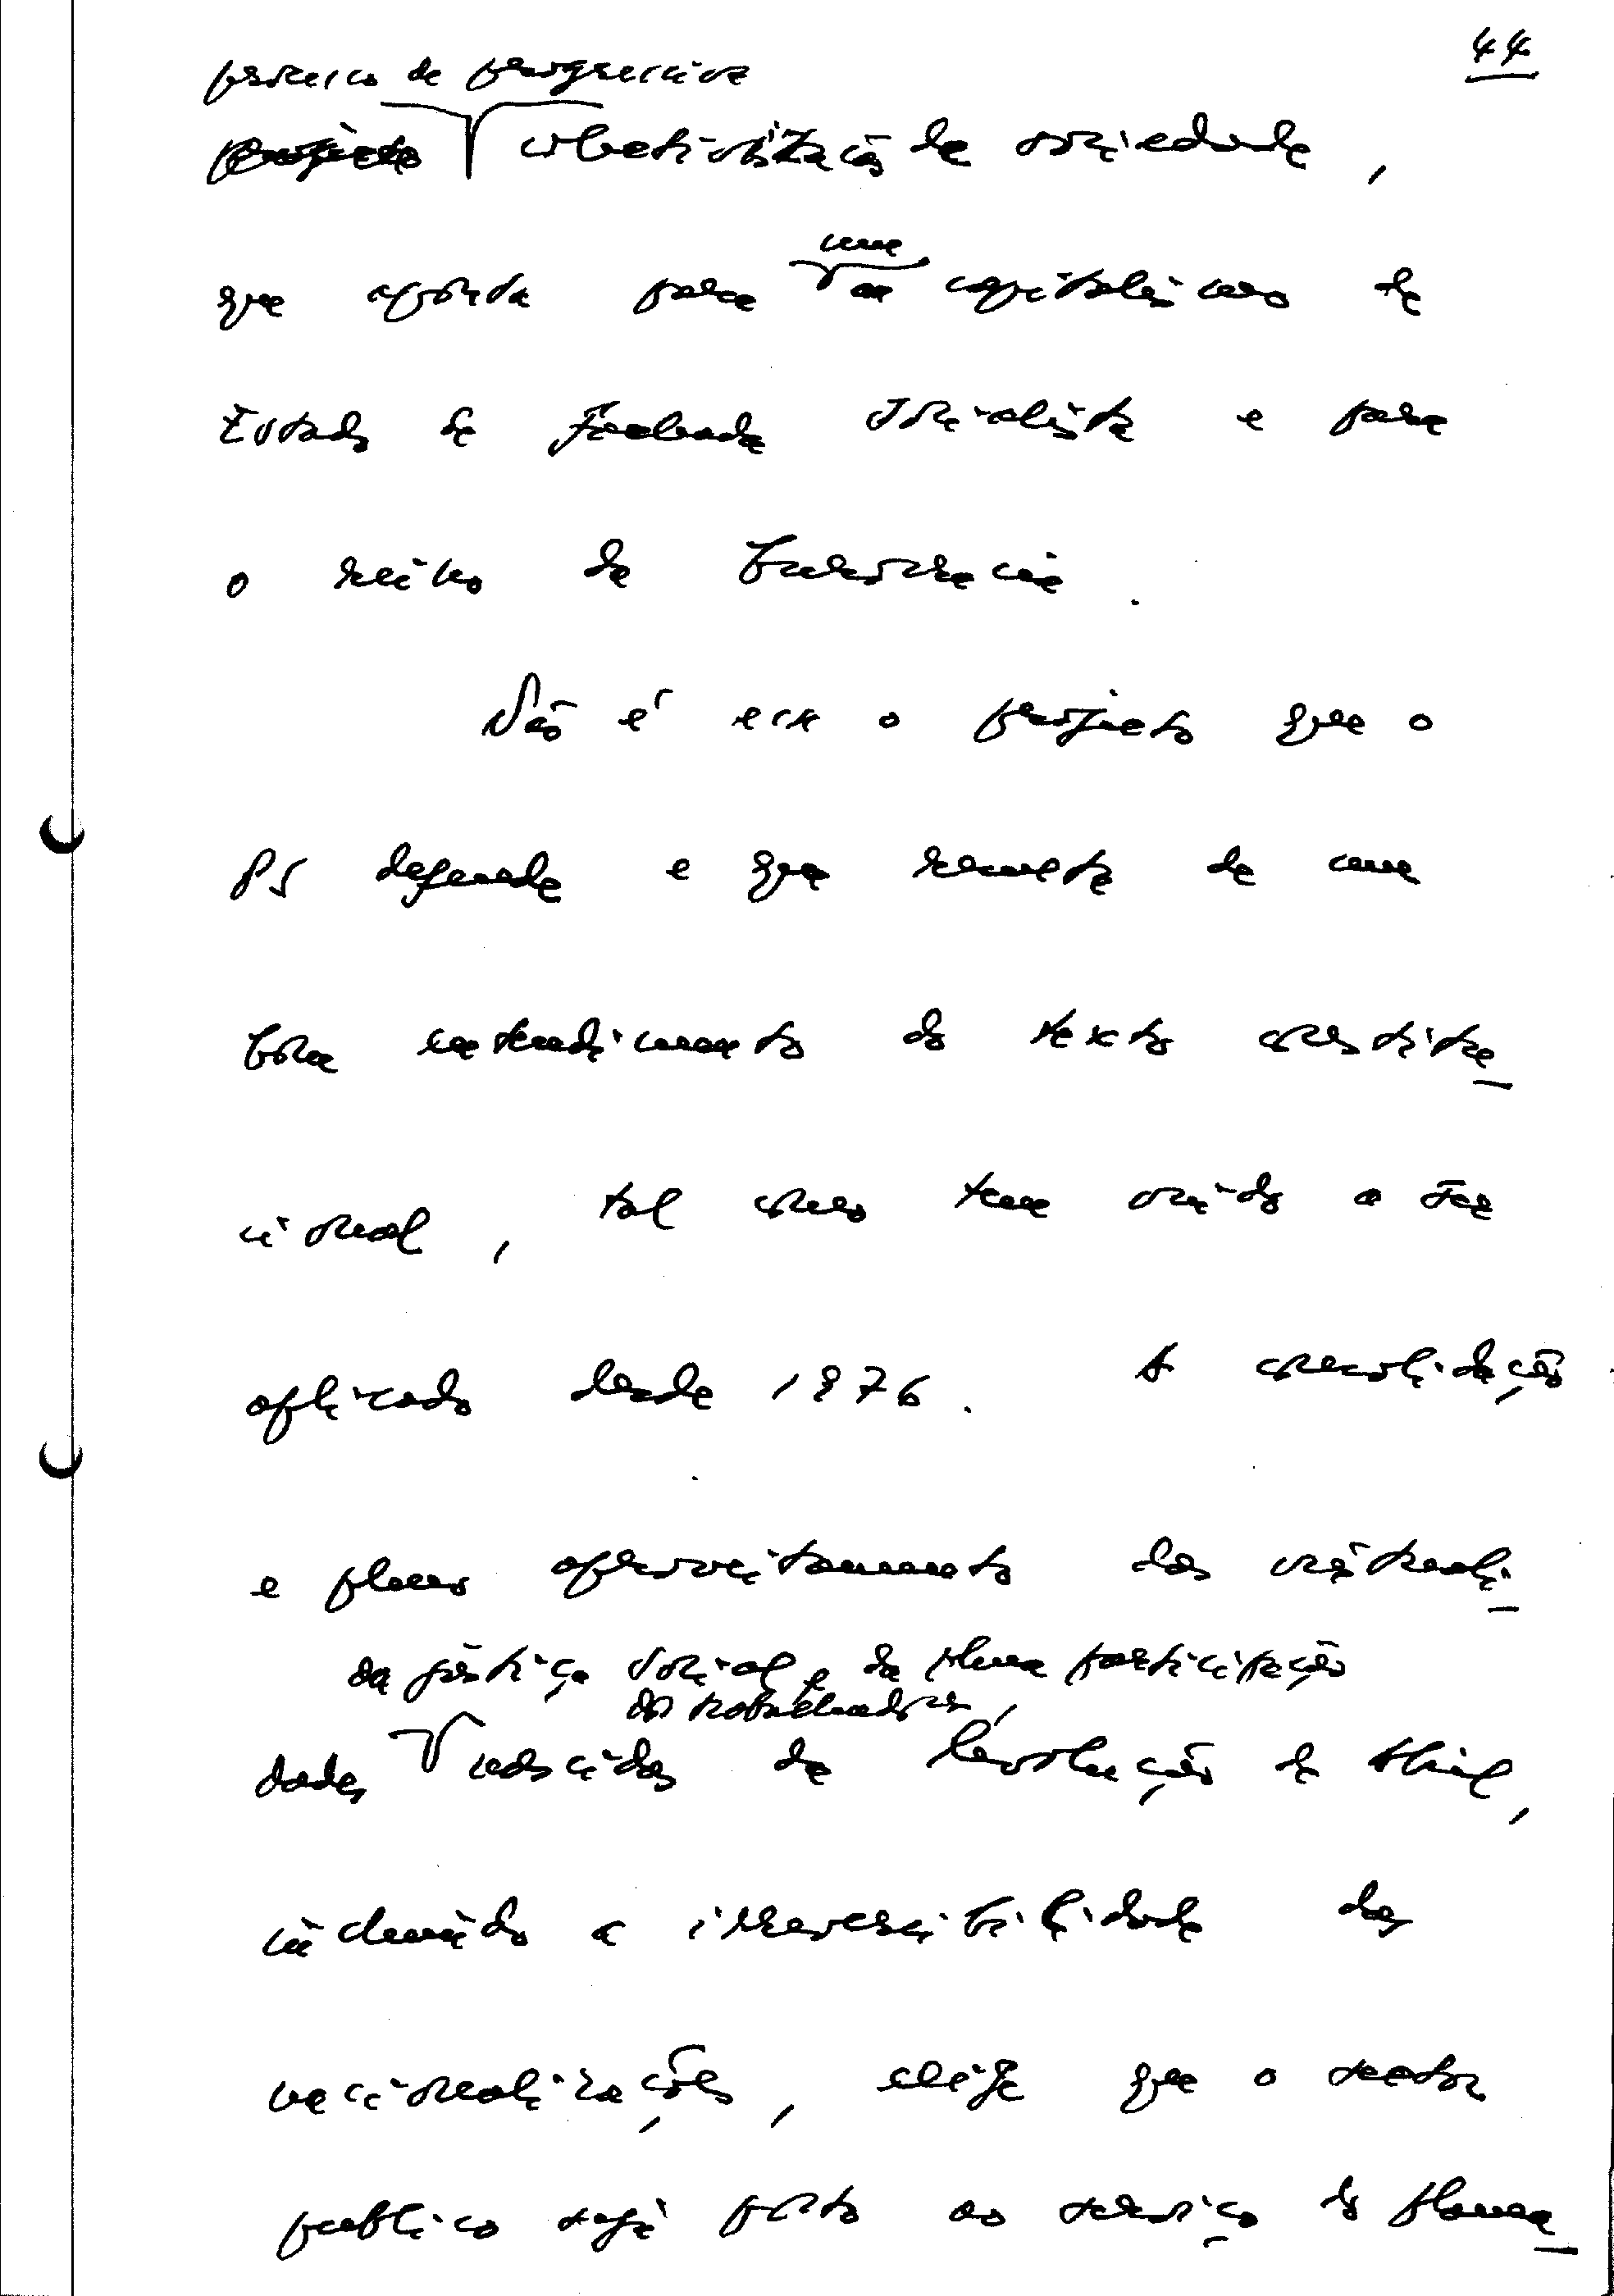 44
processo de progressiva
projecto colectivização da sociedade,
que aponta para um capitalismo de
Estado de fachada socialista e para
o reino da burocracia.
Não é esse o projecto que o
PS defende e que resulta de um
bom entendimento do texto constitu_
cional, tal como tem vindo a ser
aplicado desde 1976. A consolidação
e pleno aproveitamento das virtuali_
da justiça social e da plena participação
dos trabalhadores,
dades nascidas da Revolução de Abril,
incluindo a irreversibilidade das
nacionalizações, exige que o sector
público seja posto ao serviço do planea_